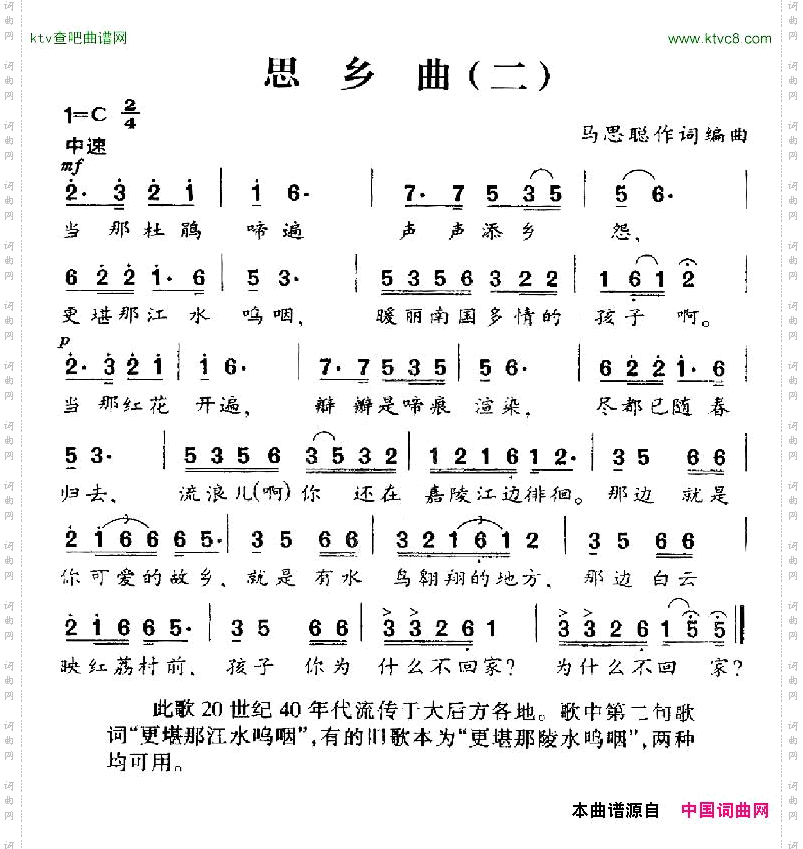 ktv查吧曲谱网
www.ktvc8.com
思 乡 曲(二)
1=C 2/4
中速
马思聪作词编曲
mf
2· 3 2 1 | 1 6· | 7· 7 5 3 5 | 5 6· |
当 那 杜 鹃 啼 遍 声 声 添 乡 怨,
6 2 2 1· 6 | 5 3· | 5 3 5 6 3 2 2 | 1 6 1 2 |
更堪那江 水 呜咽, 暖丽南国多情的 孩子 啊。
p
2· 3 2 1 | 1 6· | 7· 7 5 3 5 | 5 6· | 6 2 2 1· 6 |
当 那红花 开遍, 瓣 瓣是啼痕 渲染, 尽都已随 春
5 3· | 5 3 5 6 3 5 3 2 | 1 2 1 6 1 2· | 3 5 6 6 |
归去, 流浪儿(啊)你 还在 嘉陵江边徘徊。那边 就是
2 1 6 6 6 5· | 3 5 6 6 | 3 2 1 6 1 2 | 3 5 6 6 |
你可爱的故乡, 就是 有水 鸟翱翔的地方, 那边 白云
2 1 6 6 5· | 3 5 6 6 | 3 3 2 6 1 | 3 3 2 6 1 5 5 ‖
映红荔村前, 孩子 你为 什么不回家? 为什么不回 家?
此歌20世纪40年代流传于大后方各地。歌中第二句歌
词“更堪那江水呜咽”,有的旧歌本为“更堪那陵水呜咽”,两种
均可用。
本曲谱源自 中国词曲网